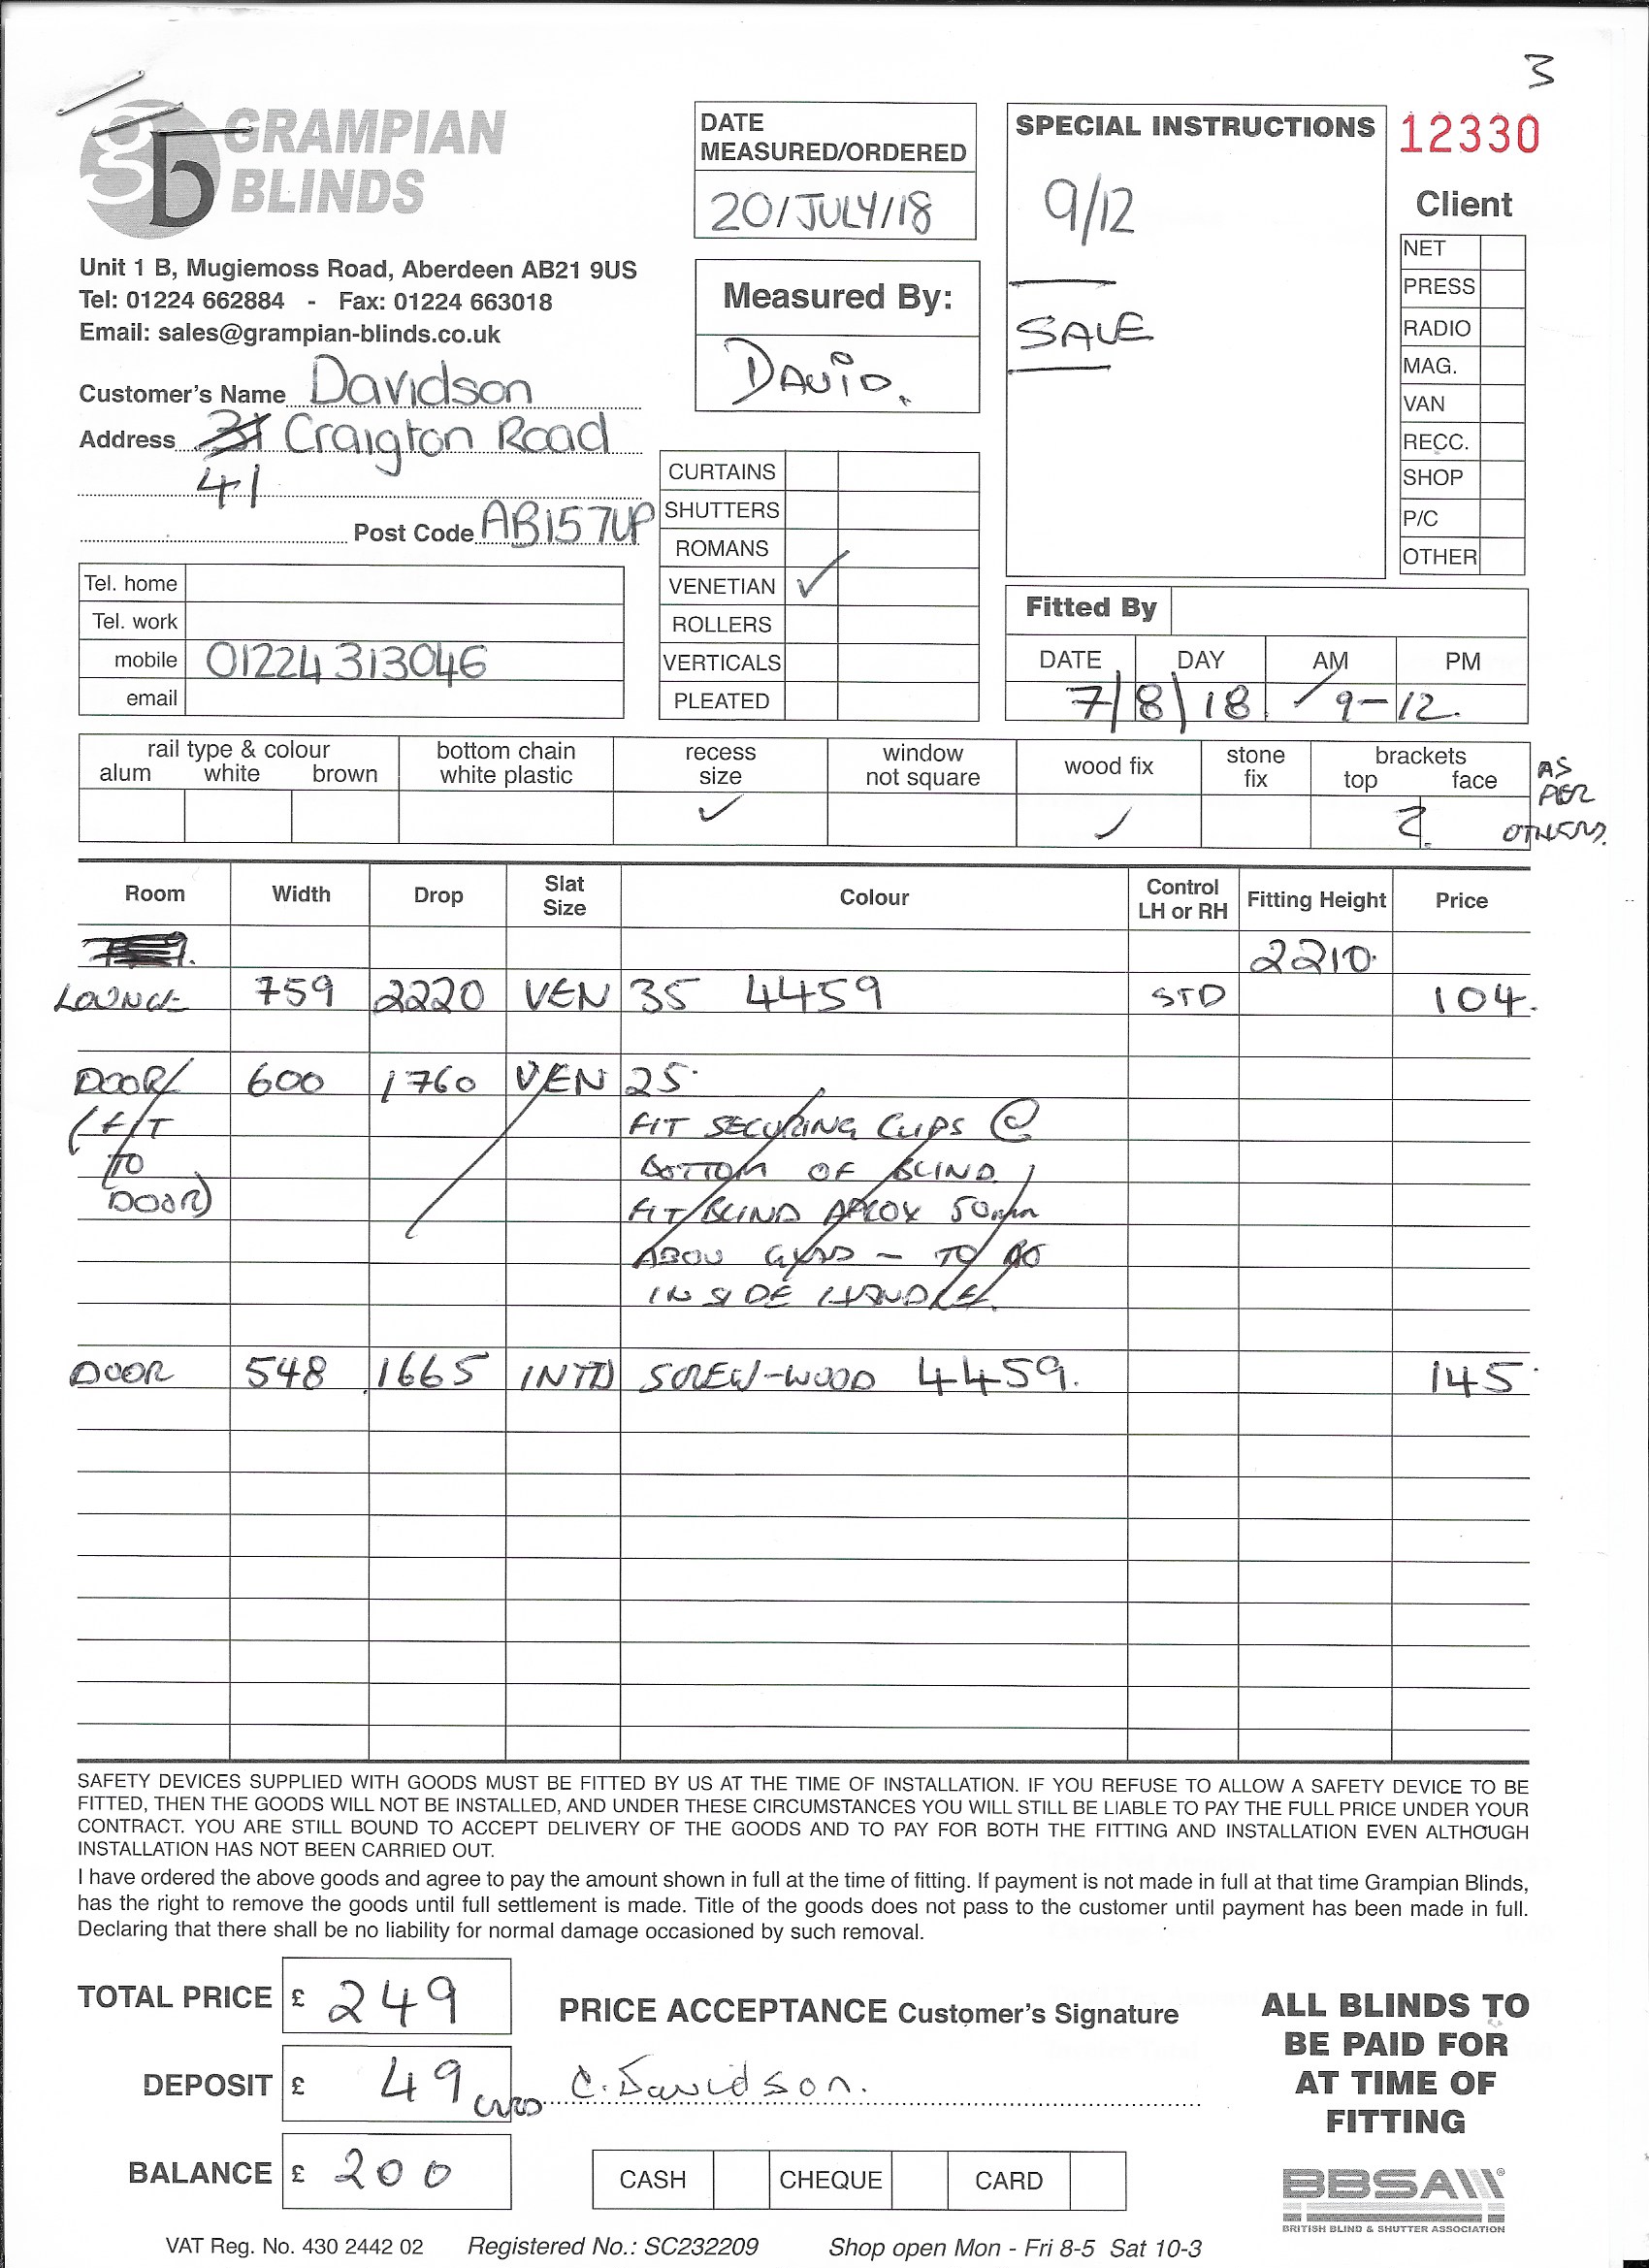 3
GRAMPIAN
BLINDS
Unit 1 B, Mugiemoss Road, Aberdeen AB21 9US
Tel: 01224 662884 - Fax: 01224 663018
Email: sales@grampian-blinds.co.uk
Customer's Name Davidson
Address 31 Craigton Road
41
Post Code AB157UP
Tel. home
Tel. work
mobile 01224 313046
email
DATE
MEASURED/ORDERED
20/JULY/18
Measured By:
DAVID.
CURTAINS
SHUTTERS
ROMANS
VENETIAN ✓
ROLLERS
VERTICALS
PLEATED
SPECIAL INSTRUCTIONS
9/12
SALE
12330
Client
NET
PRESS
RADIO
MAG.
VAN
RECC.
SHOP
P/C
OTHER
Fitted By
DATE DAY AM PM
7/8/18 / 9-12.
rail type & colour
alum white brown
bottom chain
white plastic
recess
size
✓
window
not square
wood fix
✓
stone
fix
brackets
top face
?
AS
PER
OTHERS.
Room Width Drop Slat Size Colour Control LH or RH Fitting Height Price
2210.
LOUNGE 759 2220 VEN 35 4459 STD 104.
DOOR/ 600 1760 VEN 25
(FIT FIT SECURING CLIPS @
TO BOTTOM OF BLIND
DOOR) FIT BLIND APROX 50mm
ABOV - TO GO
INSIDE HANDLE.
DOOR 548 1665 INTD SCREW-WOOD 4459. 145
SAFETY DEVICES SUPPLIED WITH GOODS MUST BE FITTED BY US AT THE TIME OF INSTALLATION. IF YOU REFUSE TO ALLOW A SAFETY DEVICE TO BE
FITTED, THEN THE GOODS WILL NOT BE INSTALLED, AND UNDER THESE CIRCUMSTANCES YOU WILL STILL BE LIABLE TO PAY THE FULL PRICE UNDER YOUR
CONTRACT. YOU ARE STILL BOUND TO ACCEPT DELIVERY OF THE GOODS AND TO PAY FOR BOTH THE FITTING AND INSTALLATION EVEN ALTHOUGH
INSTALLATION HAS NOT BEEN CARRIED OUT.
I have ordered the above goods and agree to pay the amount shown in full at the time of fitting. If payment is not made in full at that time Grampian Blinds,
has the right to remove the goods until full settlement is made. Title of the goods does not pass to the customer until payment has been made in full.
Declaring that there shall be no liability for normal damage occasioned by such removal.
TOTAL PRICE £ 249
DEPOSIT £ 49 CARD
BALANCE £ 200
PRICE ACCEPTANCE Customer's Signature
C. Davidson.
CASH CHEQUE CARD
ALL BLINDS TO
BE PAID FOR
AT TIME OF
FITTING
BBSA
BRITISH BLIND & SHUTTER ASSOCIATION
VAT Reg. No. 430 2442 02 Registered No.: SC232209 Shop open Mon - Fri 8-5 Sat 10-3